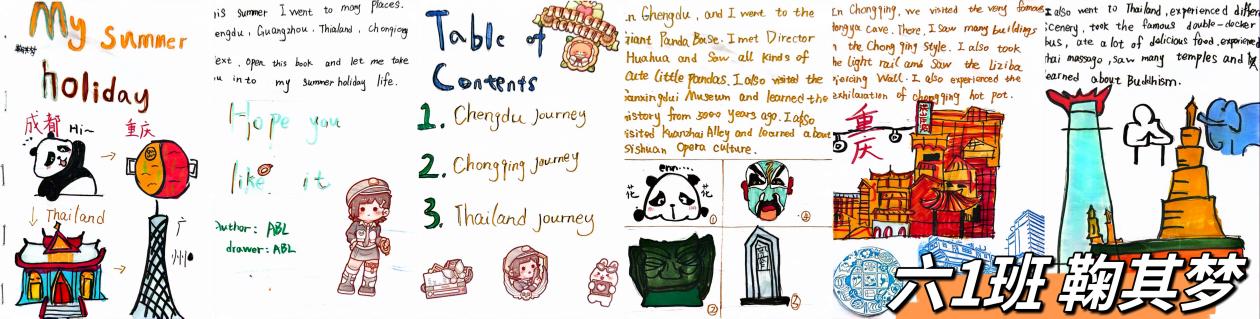 My summer
鞠其梦
holiday
成都 Hi~ 重庆
Thailand
广州
his summer I went to many places.
engdu, Guangzhou, Thialand, chongqing
ext, open this book and let me take
ou into my summer holiday life.
Hope you
like it
Author: ABL
drawer: ABL
Table of
Contents
1. Chengdu Journey
2. Chongqing journey
3. Thailand journey
In Chengdu, and I went to the
Giant Panda Base. I met Director
Huahua and Saw all kinds of
Cute little pandas. I also visited the
Sanxingdui Museum and learned the
history from 3000 years ago. I also
visited Kuanzhai Alley and learned about
Sishuan Opera culture.
enn....
花 花
①
②
In Chongqing, we visited the very famous
Hongya cave. There, I saw many buildings
in the Chongqing Style. I also took
the light rail and Saw the Liziba
Piercing Wall. I also experienced the
exhilaration of chongqing hot pot.
重庆
I also went to Thailand, experienced differ
scenery, took the famous double-docker
bus, ate a lot of delicious food, experienced
thai massage, saw many temples and
learned about Buddhism.
六1班 鞠其梦